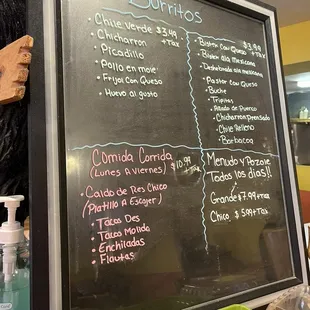 Burritos
• Chile verde $3.49 +Tax
• Chicharron
• Picadillo
• Pollo en mole
• Frijol Con Queso
• Huevo al gusto
• Bistec Con Queso $3.99 +Tax
• Bistec ala Mexicana
• Deshebrada ala mexicana
• Pastor Con Queso
• Buche
• Tripitas
• Asado de Puerco
• Chicharron prensado
• Chile Relleno
• Barbacoa
Comida Corrida $10.99 +Tax
(Lunes A viernes)
• Caldo de Res Chico
(Platillo A Escojer)
• Tacos Des
• Tacos Molida
• Enchiladas
• Flautas
Menudo y Pozole
Todos los dias!!
Grande $7.99+Tax
Chico $5.99+Tax